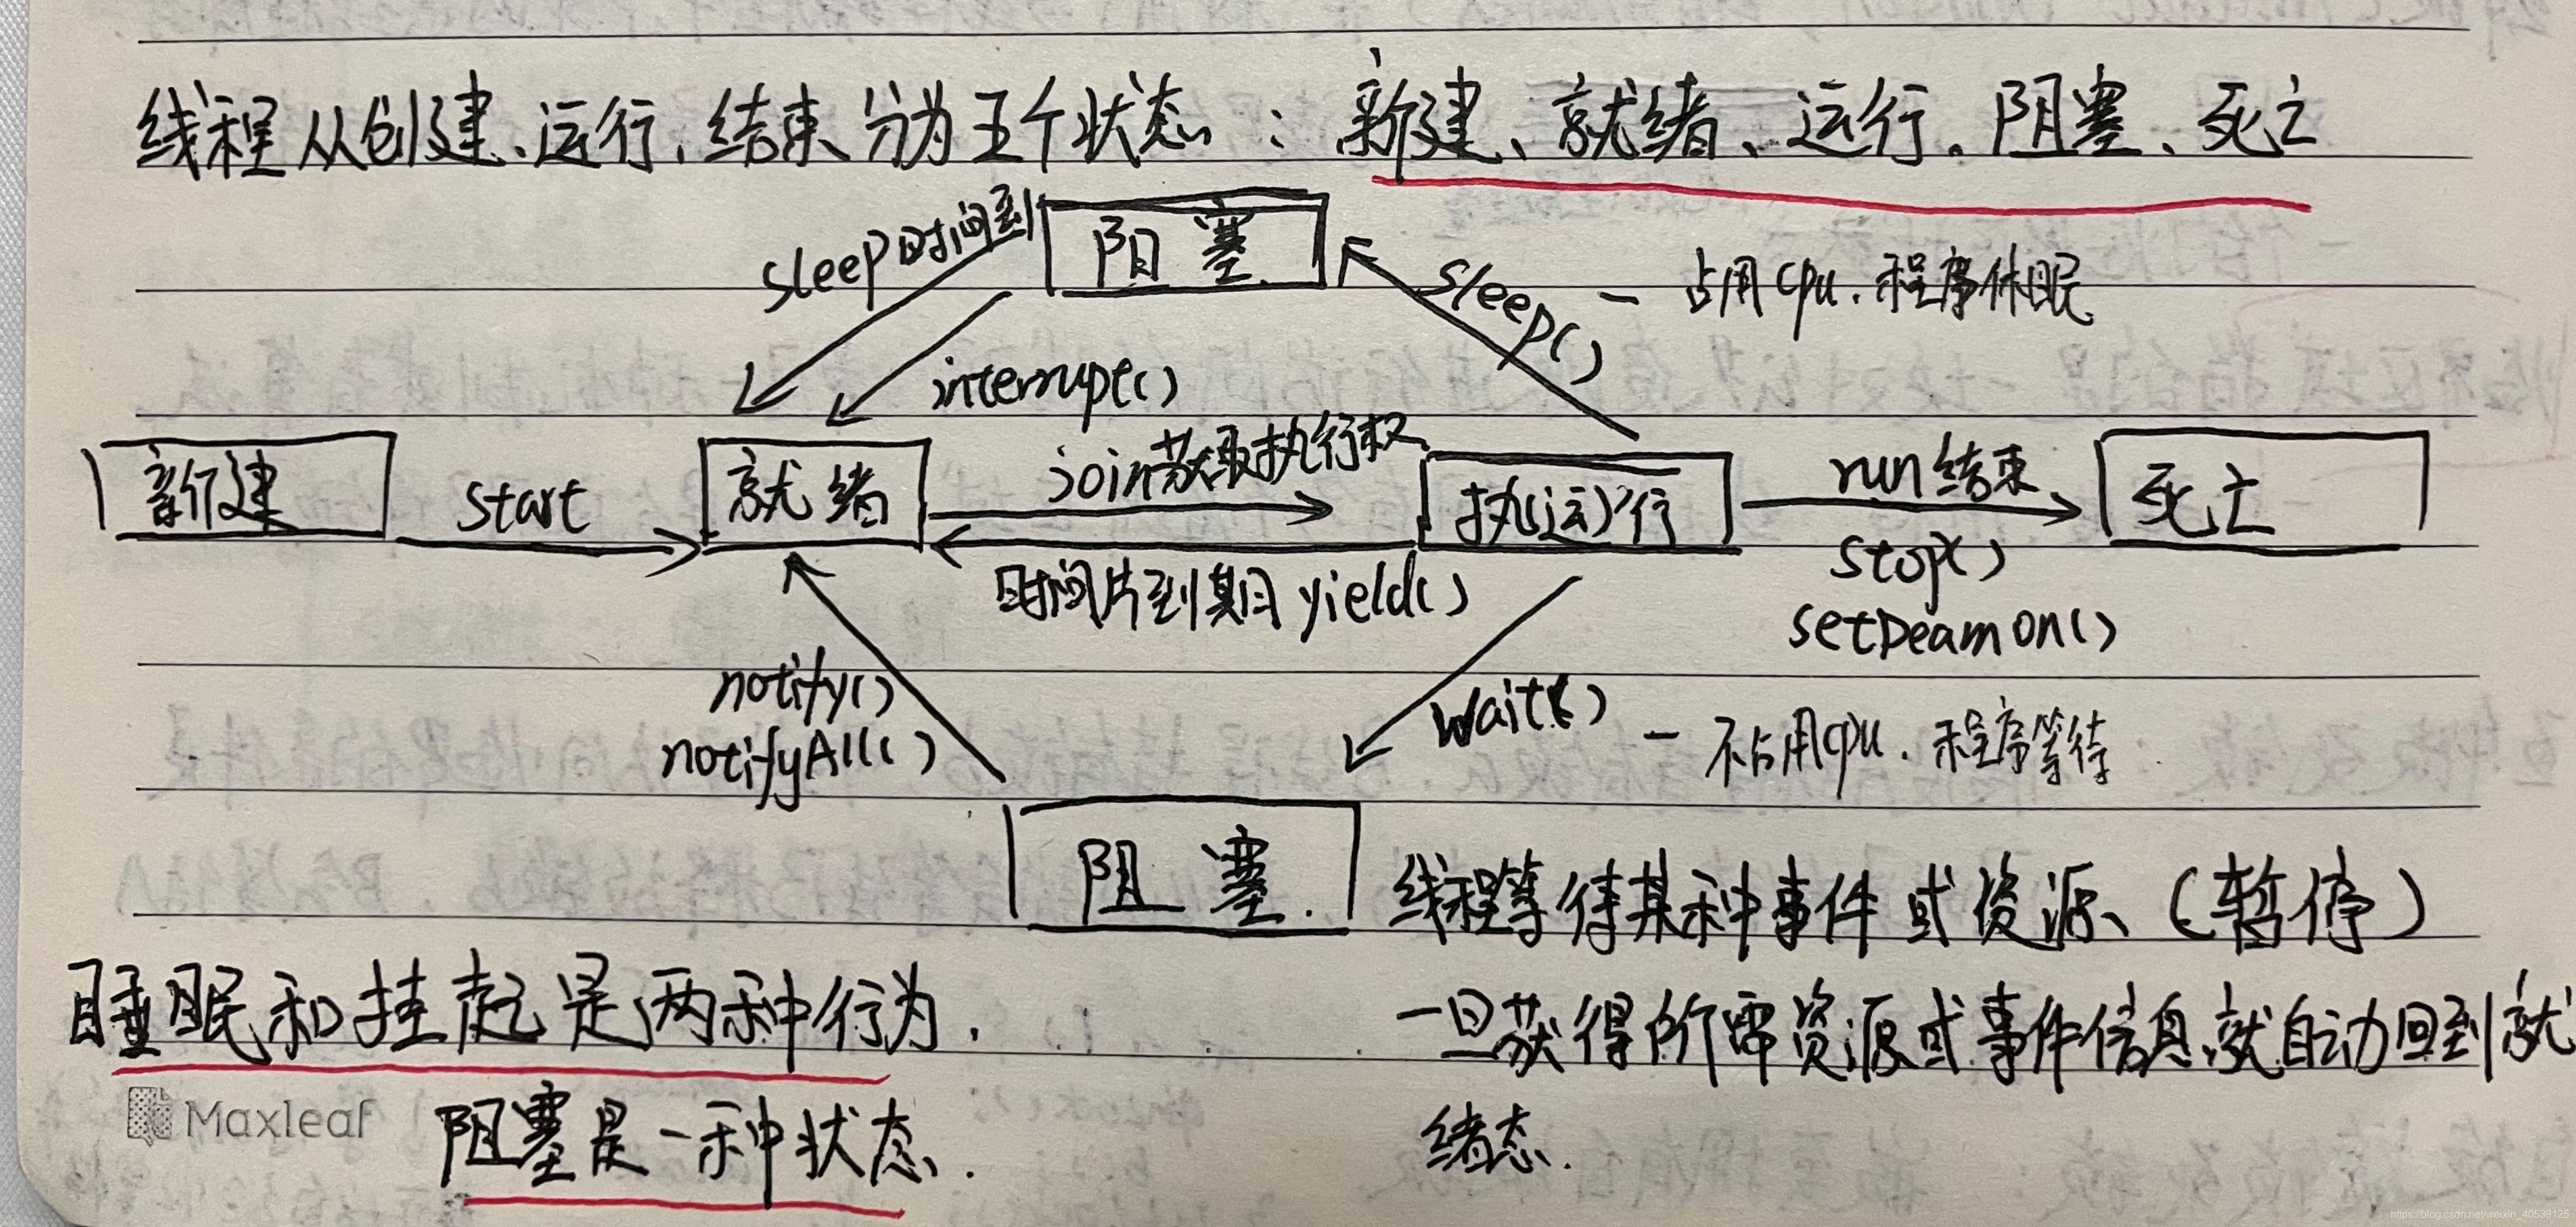 线程从创建、运行、结束分为五个状态：新建、就绪、运行、阻塞、死亡
sleep时间到
阻塞
sleep() — 占用cpu.程序休眠
interrupt()
新建
start
就绪
join获取执行权
执(运)行
run结束
死亡
时间片到期 yield()
stop()
setDeamon()
notify()
notifyAll()
wait() — 不占用cpu.程序等待
阻塞.
线程等待某种事件或资源、(暂停)
睡眠和挂起是两种行为.
一旦获得所需资源或事件信息,就自动回到就
绪态.
阻塞是一种状态.
Maxleaf
https://blog.csdn.net/weixin_40539125